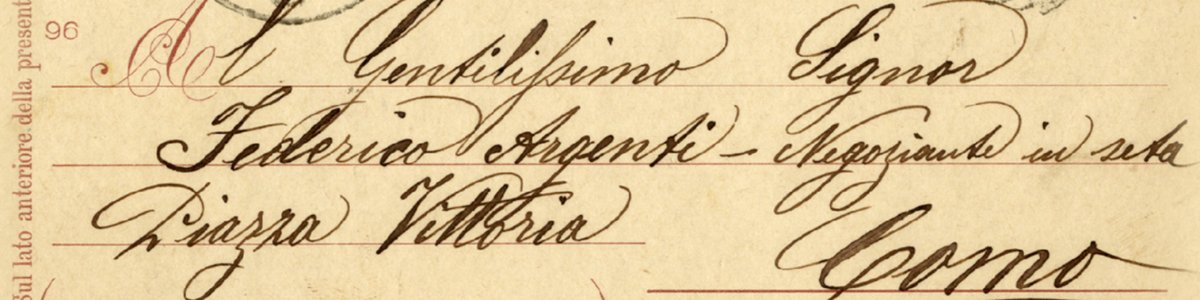 96
Al Gentilissimo Signor
Federico Argenti - Negoziante in seta
Piazza Vittoria
Como
Sul lato anteriore della present